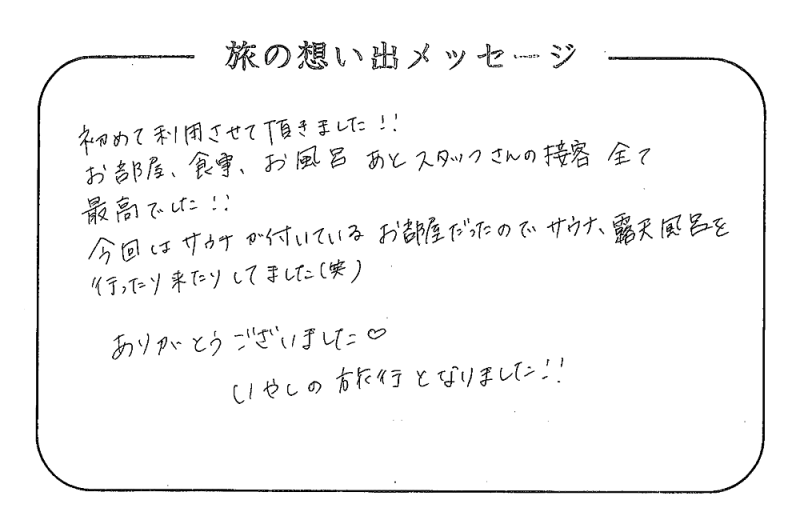 旅の想い出メッセージ
初めて利用させて頂きました!!
お部屋、食事、お風呂 あと スタッフさんの接客 全て
最高でした!!
今回は サウナ が付いている お部屋だったので サウナ、露天風呂を
行ったり来たりしてました(笑)
ありがとうございました♡
いやしの旅行となりました!!